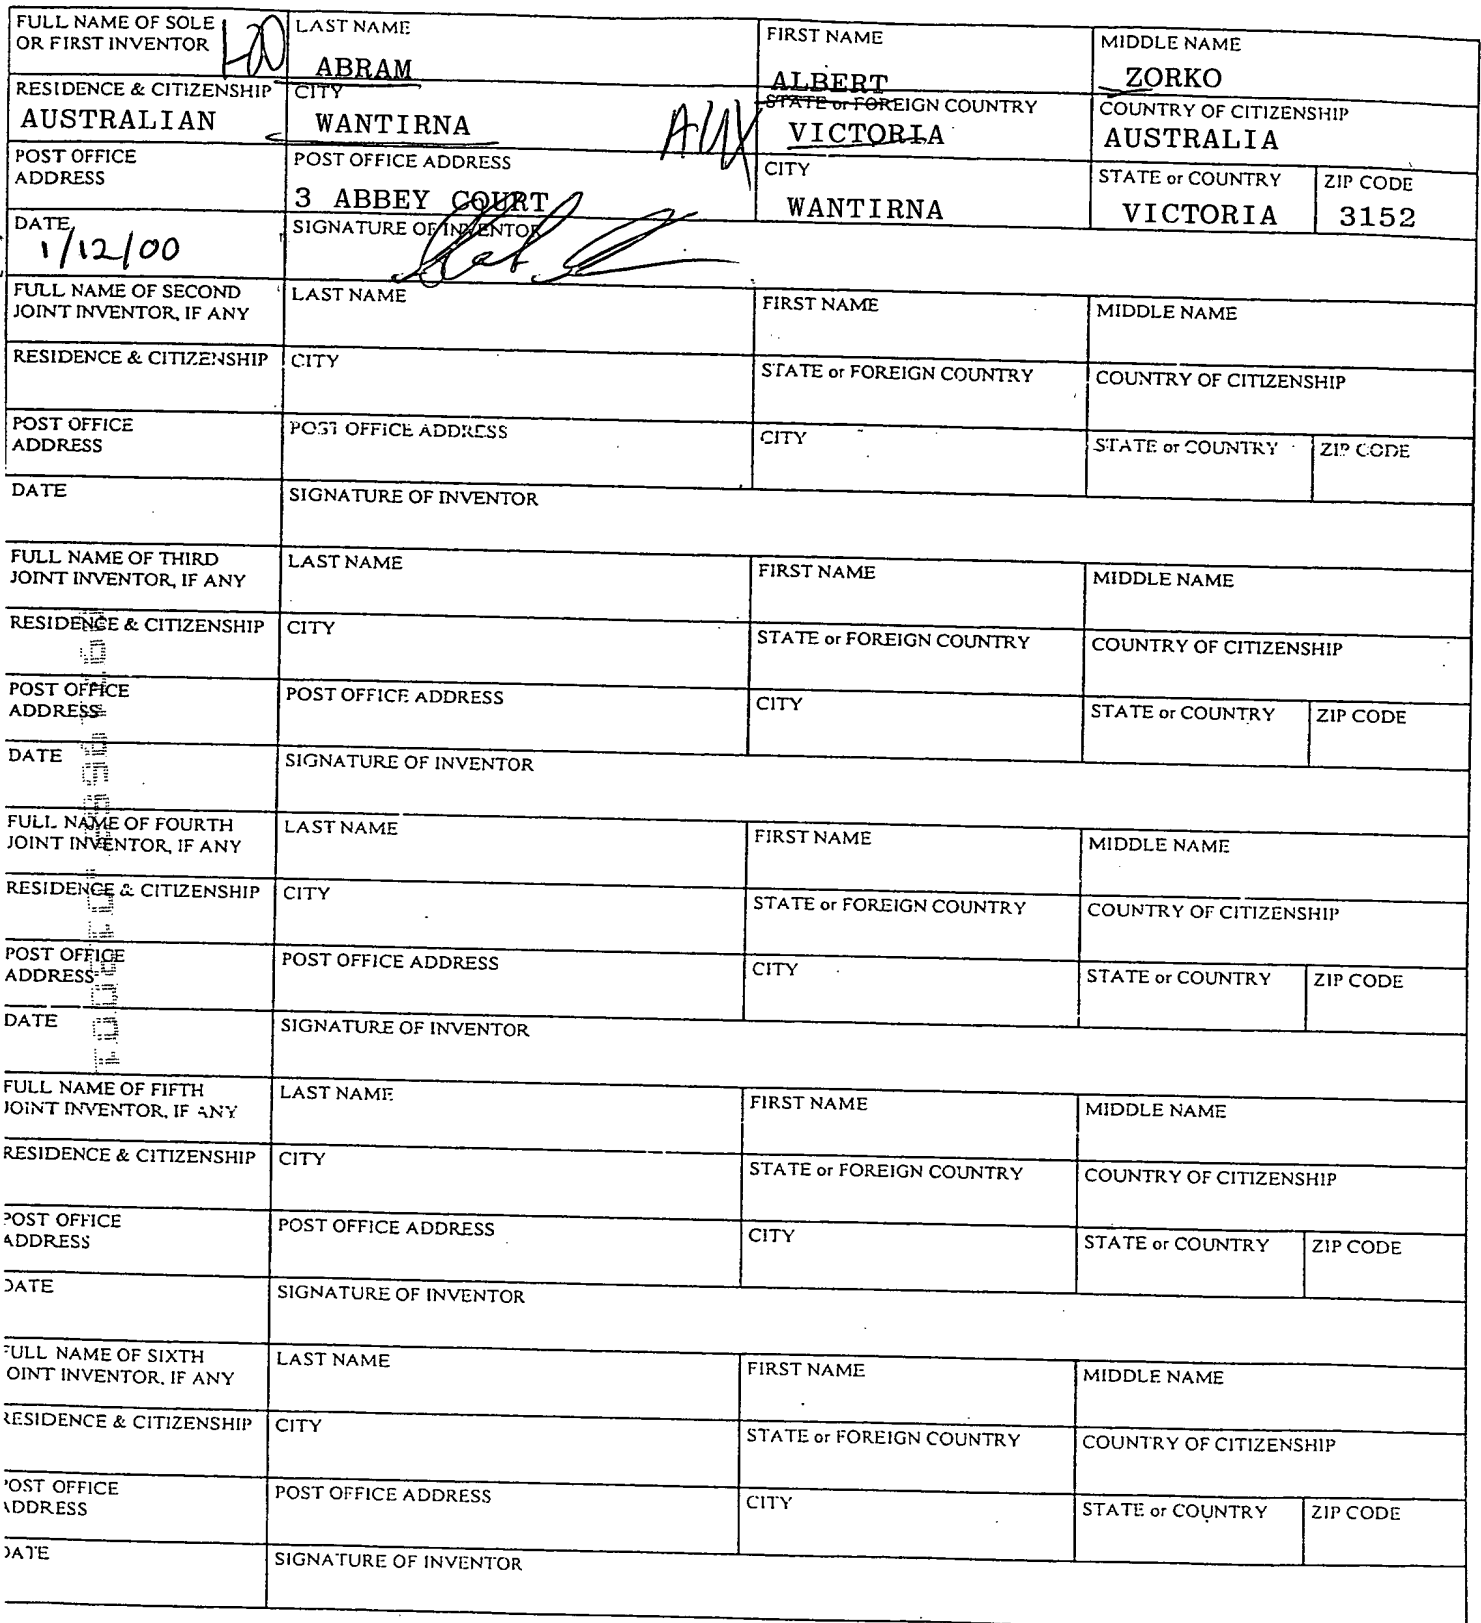 FULL NAME OF SOLE OR FIRST INVENTOR 1-00 LAST NAME ABRAM FIRST NAME ALBERT MIDDLE NAME ZORKO
RESIDENCE & CITIZENSHIP AUSTRALIAN CITY WANTIRNA AUX STATE or FOREIGN COUNTRY VICTORIA COUNTRY OF CITIZENSHIP AUSTRALIA
POST OFFICE ADDRESS POST OFFICE ADDRESS 3 ABBEY COURT CITY WANTIRNA STATE or COUNTRY VICTORIA ZIP CODE 3152
DATE 1/12/00 SIGNATURE OF INVENTOR
FULL NAME OF SECOND JOINT INVENTOR, IF ANY LAST NAME FIRST NAME MIDDLE NAME
RESIDENCE & CITIZENSHIP CITY STATE or FOREIGN COUNTRY COUNTRY OF CITIZENSHIP
POST OFFICE ADDRESS POST OFFICE ADDRESS CITY STATE or COUNTRY ZIP CODE
DATE SIGNATURE OF INVENTOR
FULL NAME OF THIRD JOINT INVENTOR, IF ANY LAST NAME FIRST NAME MIDDLE NAME
RESIDENCE & CITIZENSHIP CITY STATE or FOREIGN COUNTRY COUNTRY OF CITIZENSHIP
POST OFFICE ADDRESS POST OFFICE ADDRESS CITY STATE or COUNTRY ZIP CODE
DATE SIGNATURE OF INVENTOR
FULL NAME OF FOURTH JOINT INVENTOR, IF ANY LAST NAME FIRST NAME MIDDLE NAME
RESIDENCE & CITIZENSHIP CITY STATE or FOREIGN COUNTRY COUNTRY OF CITIZENSHIP
POST OFFICE ADDRESS POST OFFICE ADDRESS CITY STATE or COUNTRY ZIP CODE
DATE SIGNATURE OF INVENTOR
FULL NAME OF FIFTH JOINT INVENTOR, IF ANY LAST NAME FIRST NAME MIDDLE NAME
RESIDENCE & CITIZENSHIP CITY STATE or FOREIGN COUNTRY COUNTRY OF CITIZENSHIP
POST OFFICE ADDRESS POST OFFICE ADDRESS CITY STATE or COUNTRY ZIP CODE
DATE SIGNATURE OF INVENTOR
FULL NAME OF SIXTH JOINT INVENTOR, IF ANY LAST NAME FIRST NAME MIDDLE NAME
RESIDENCE & CITIZENSHIP CITY STATE or FOREIGN COUNTRY COUNTRY OF CITIZENSHIP
POST OFFICE ADDRESS POST OFFICE ADDRESS CITY STATE or COUNTRY ZIP CODE
DATE SIGNATURE OF INVENTOR